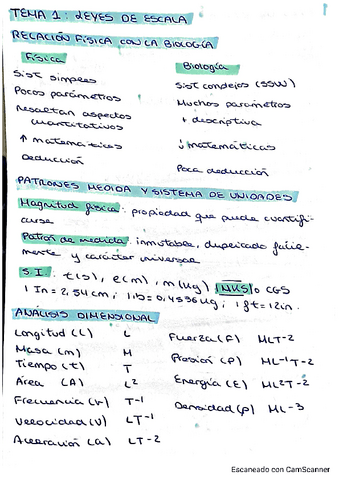 TEMA 1: LEYES DE ESCALA
RELACIÓN FÍSICA CON LA BIOLOGÍA
Física
Sist simples
Pocos parámetros
Resaltan aspectos
cuantitativos
↑ matemáticas
deducción
Biología
Sist complejos (SSW)
Muchos parámetros
+ descriptiva
↓ matemáticas
Poca deducción
PATRONES MEDIDA Y SISTEMA DE UNIDADES
Magnitud física: propiedad que puede cuantifi-
carse
Patrón de medida: inmutable, duplicado fácil-
mente y carácter universal
S.I: t(s), e(m), m(kg) MKS o CGS
1 In = 2,54cm; 1 lb = 0,4536kg; 1 ft = 12in.
ANÁLISIS DIMENSIONAL
Longitud (L) L
Masa (m) M
Tiempo (t) T
Área (A) L²
Frecuencia (ν) T-1
Velocidad (v) LT-1
Aceleración (a) LT-2
Fuerza (F) MLT-2
Presión (P) ML-1T-2
Energía (E) ML²T-2
Densidad (ρ) ML-3
Escaneado con CamScanner